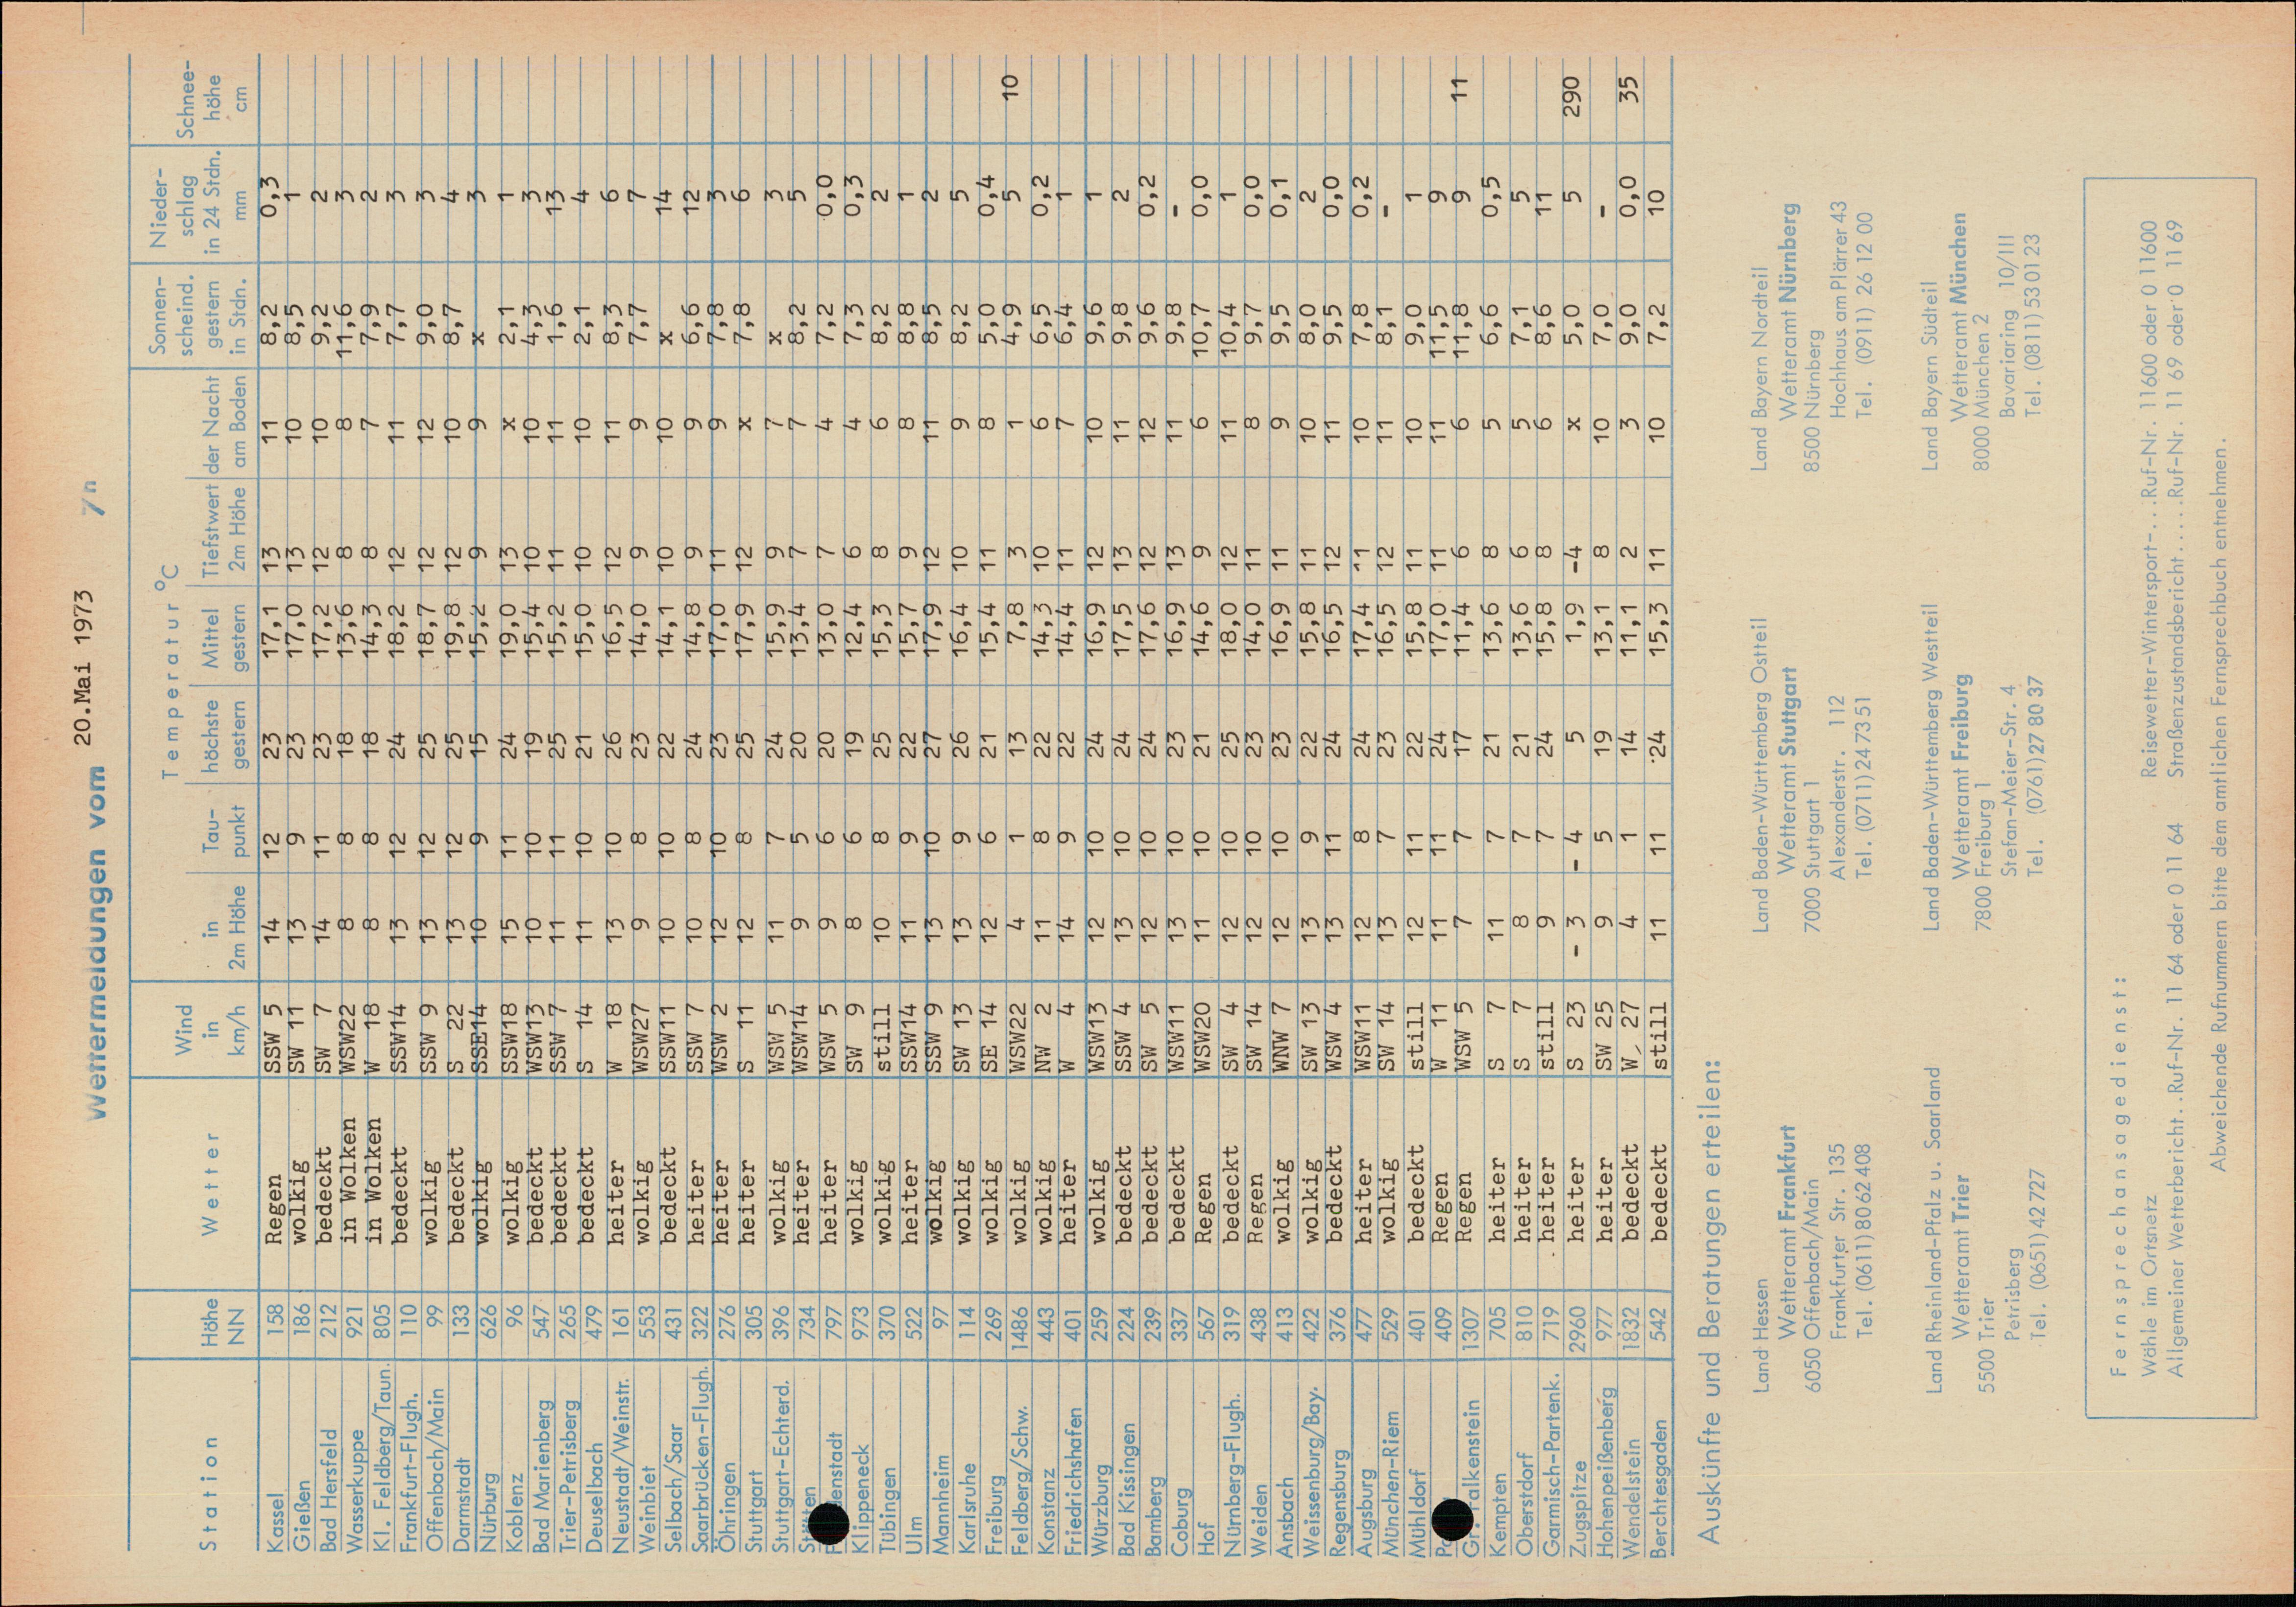 Wettermeldungen vom 20.Mai 1973 7h
Temperatur °C
Station Höhe NN Wetter Wind in km/h in 2m Höhe Tau-punkt höchste gestern Mittel gestern Tiefstwert der Nacht 2m Höhe am Boden Sonnen-scheind. gestern in Stdn. Nieder-schlag in 24 Stdn. mm Schnee-höhe cm
Kassel 158 Regen SSW 5 14 12 23 17,1 13 11 8,2 0,3
Gießen 186 wolkig SW 11 13 9 23 17,0 13 10 8,5 1
Bad Hersfeld 212 bedeckt SW 7 14 11 23 17,2 12 10 9,2 2
Wasserkuppe 921 in Wolken WSW22 8 8 18 13,6 8 8 11,6 3
Kl. Feldberg/Taun. 805 in Wolken W 18 8 8 18 14,3 8 7 7,9 2
Frankfurt-Flugh. 110 bedeckt SSW14 13 12 24 18,2 12 11 7,7 3
Offenbach/Main 99 wolkig SSW 9 13 12 25 18,7 12 12 9,0 3
Darmstadt 133 bedeckt S 22 13 12 25 19,8 12 10 8,7 4
Nürburg 626 wolkig SSE14 10 9 15 15,2 9 9 x 3
Koblenz 96 wolkig SSW18 15 11 24 19,0 13 x 2,1 1
Bad Marienberg 547 bedeckt WSW13 10 10 19 15,4 10 10 4,3 3
Trier-Petrisberg 265 bedeckt SSW 7 11 11 25 15,2 11 11 1,6 13
Deuselbach 479 bedeckt S 14 11 10 21 15,0 10 10 2,1 4
Neustadt/Weinstr. 161 heiter W 18 13 10 26 16,5 12 11 8,3 6
Weinbiet 553 wolkig WSW27 9 8 23 14,0 9 9 7,7 7
Selbach/Saar 431 bedeckt SSW11 10 10 22 14,1 10 10 x 14
Saarbrücken-Flugh. 322 heiter SSW 7 10 8 24 14,8 9 9 6,6 12
Öhringen 276 heiter WSW 2 12 10 23 17,0 11 9 7,8 3
Stuttgart 305 heiter S 11 12 8 25 17,9 12 x 7,8 6
Stuttgart-Echterd. 396 wolkig WSW 5 11 7 24 15,9 9 7 x 3
734 heiter WSW14 9 5 20 13,4 7 7 8,2 5
797 heiter WSW 5 9 6 20 13,0 7 4 7,2 0,0
Klippeneck 973 wolkig SW 9 8 6 19 12,4 6 4 7,3 0,3
Tübingen 370 wolkig still 10 8 25 15,3 8 6 8,2 2
Ulm 522 heiter SSW14 11 9 22 15,7 9 8 8,8 1
Mannheim 97 wolkig SSW 9 13 10 27 17,9 12 11 8,5 2
Karlsruhe 114 wolkig SW 13 13 9 26 16,4 10 9 8,2 5
Freiburg 269 wolkig SE 14 12 6 21 15,4 11 8 5,0 0,4
Feldberg/Schw. 1486 wolkig WSW22 4 1 13 7,8 3 1 4,9 5 10
Konstanz 443 wolkig NW 2 11 8 22 14,3 10 6 6,5 0,2
Friedrichshafen 401 heiter W 4 14 9 22 14,4 11 7 6,4 1
Würzburg 259 wolkig WSW13 12 10 24 16,9 12 10 9,6 1
Bad Kissingen 224 bedeckt SSW 4 13 10 24 17,5 13 11 9,8 2
Bamberg 239 bedeckt SW 5 12 10 24 17,6 12 12 9,6 0,2
Coburg 337 bedeckt WSW11 13 10 23 16,9 13 11 9,8 -
Hof 567 Regen WSW20 11 10 21 14,6 9 6 10,7 0,0
Nürnberg-Flugh. 319 bedeckt SW 4 12 10 25 18,0 12 11 10,4 1
Weiden 438 Regen SW 14 12 10 23 14,0 11 8 9,7 0,0
Ansbach 413 wolkig WNW 7 12 10 23 16,9 11 9 9,5 0,1
Weissenburg/Bay. 422 wolkig SW 13 13 9 22 15,8 11 10 8,0 2
Regensburg 376 bedeckt WSW 4 13 11 24 16,5 12 11 9,5 0,0
Augsburg 477 heiter WSW11 12 8 24 17,4 11 10 7,8 0,2
München-Riem 529 wolkig SW 14 13 7 23 16,5 12 11 8,1 -
Mühldorf 401 bedeckt still 12 11 22 15,8 11 10 9,0 1
409 Regen W 11 11 11 24 17,0 11 11 11,5 9
Gr. Falkenstein 1307 Regen WSW 5 7 7 17 11,4 6 6 11,8 9 11
Kempten 705 heiter S 7 11 7 21 13,6 8 5 6,6 0,5
Oberstdorf 810 heiter S 7 8 7 21 13,6 6 5 7,1 5
Garmisch-Partenk. 719 heiter still 9 7 24 15,8 8 6 8,6 11
Zugspitze 2960 heiter S 23 - 3 - 4 5 1,9 -4 x 5,0 5 290
Hohenpeißenberg 977 heiter SW 25 9 5 19 13,1 8 10 7,0 -
Wendelstein 1832 bedeckt W 27 4 1 14 11,1 2 3 9,0 0,0 35
Berchtesgaden 542 bedeckt still 11 11 24 15,3 11 10 7,2 10
Auskünfte und Beratungen erteilen:
Land Hessen
Wetteramt Frankfurt
6050 Offenbach/Main
Frankfurter Str. 135
Tel. (0611) 80 62 408
Land Baden-Württemberg Ostteil
Wetteramt Stuttgart
7000 Stuttgart 1
Alexanderstr. 112
Tel. (0711) 24 73 51
Land Bayern Nordteil
Wetteramt Nürnberg
8500 Nürnberg
Hochhaus am Plärrer 43
Tel. (0911) 26 12 00
Land Rheinland-Pfalz u. Saarland
Wetteramt Trier
5500 Trier
Petrisberg
Tel. (0651) 42 727
Land Baden-Württemberg Westteil
Wetteramt Freiburg
7800 Freiburg 1
Stefan-Meier-Str. 4
Tel. (0761) 27 80 37
Land Bayern Südteil
Wetteramt München
8000 München 2
Bavariaring 10/III
Tel. (0811) 53 01 23
Fernsprechansagedienst:
Wähle im Ortsnetz Reisewetter-Wintersport-...Ruf-Nr. 11600 oder 0 11600
Allgemeiner Wetterbericht..Ruf-Nr. 11 64 oder 0 11 64 Straßenzustandsbericht....Ruf-Nr. 11 69 oder 0 11 69
Abweichende Rufnummern bitte dem amtlichen Fernsprechbuch entnehmen.